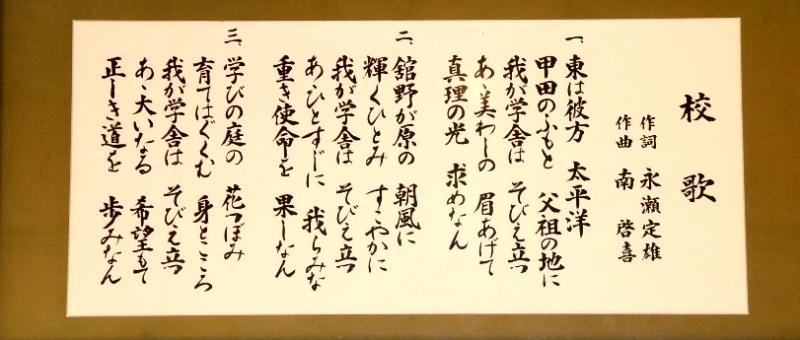 校歌
作詞 永瀬定雄
作曲 南 啓喜
一、東は彼方 太平洋
甲田のふもと 父祖の地に
我が学舎は そびえ立つ
あゝ美わしの 眉あげて
真理の光 求めなん
二、舘野が原の 朝風に
輝くひとみ すこやかに
我が学舎は そびえ立つ
あゝひとすじに 我らみな
重き使命を 果しなん
三、学びの庭の 花つぼみ
育てはぐくむ 身とこころ
我が学舎は そびえ立つ
あゝ大いなる 希望もて
正しき道を 歩みなん